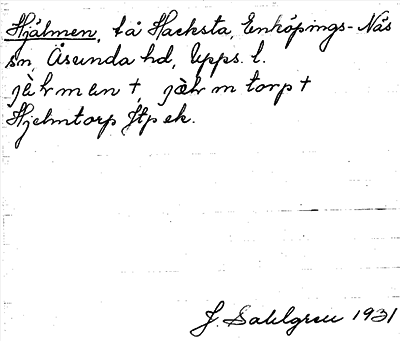 Hjälmen, tå Hacksta, Enköpings-Näs
sn, Åsunda hd, Upps. l.
jæ̀lmen +, jæ̀lm torp +
Hjelmtorp Jtp ek.
J. Sahlgren 1931